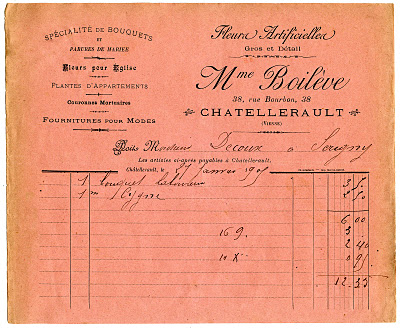 SPÉCIALITÉ DE BOUQUETS
ET
PARURES DE MARIÉE
Fleurs pour Église
PLANTES D'APPARTEMENTS
Couronnes Mortuaires
FOURNITURES POUR MODES
Fleurs Artificielles
Gros et Détail
Mme Boilève
38, rue Bourbon, 38
CHATELLERAULT
(VIENNE)
Doit Madame Decoux à Sérigny
Les articles ci-après payables à Châtellerault.
Châtellerault, le
1 bouquet
1
6 00
169. 3
2 40
0 95
12.35